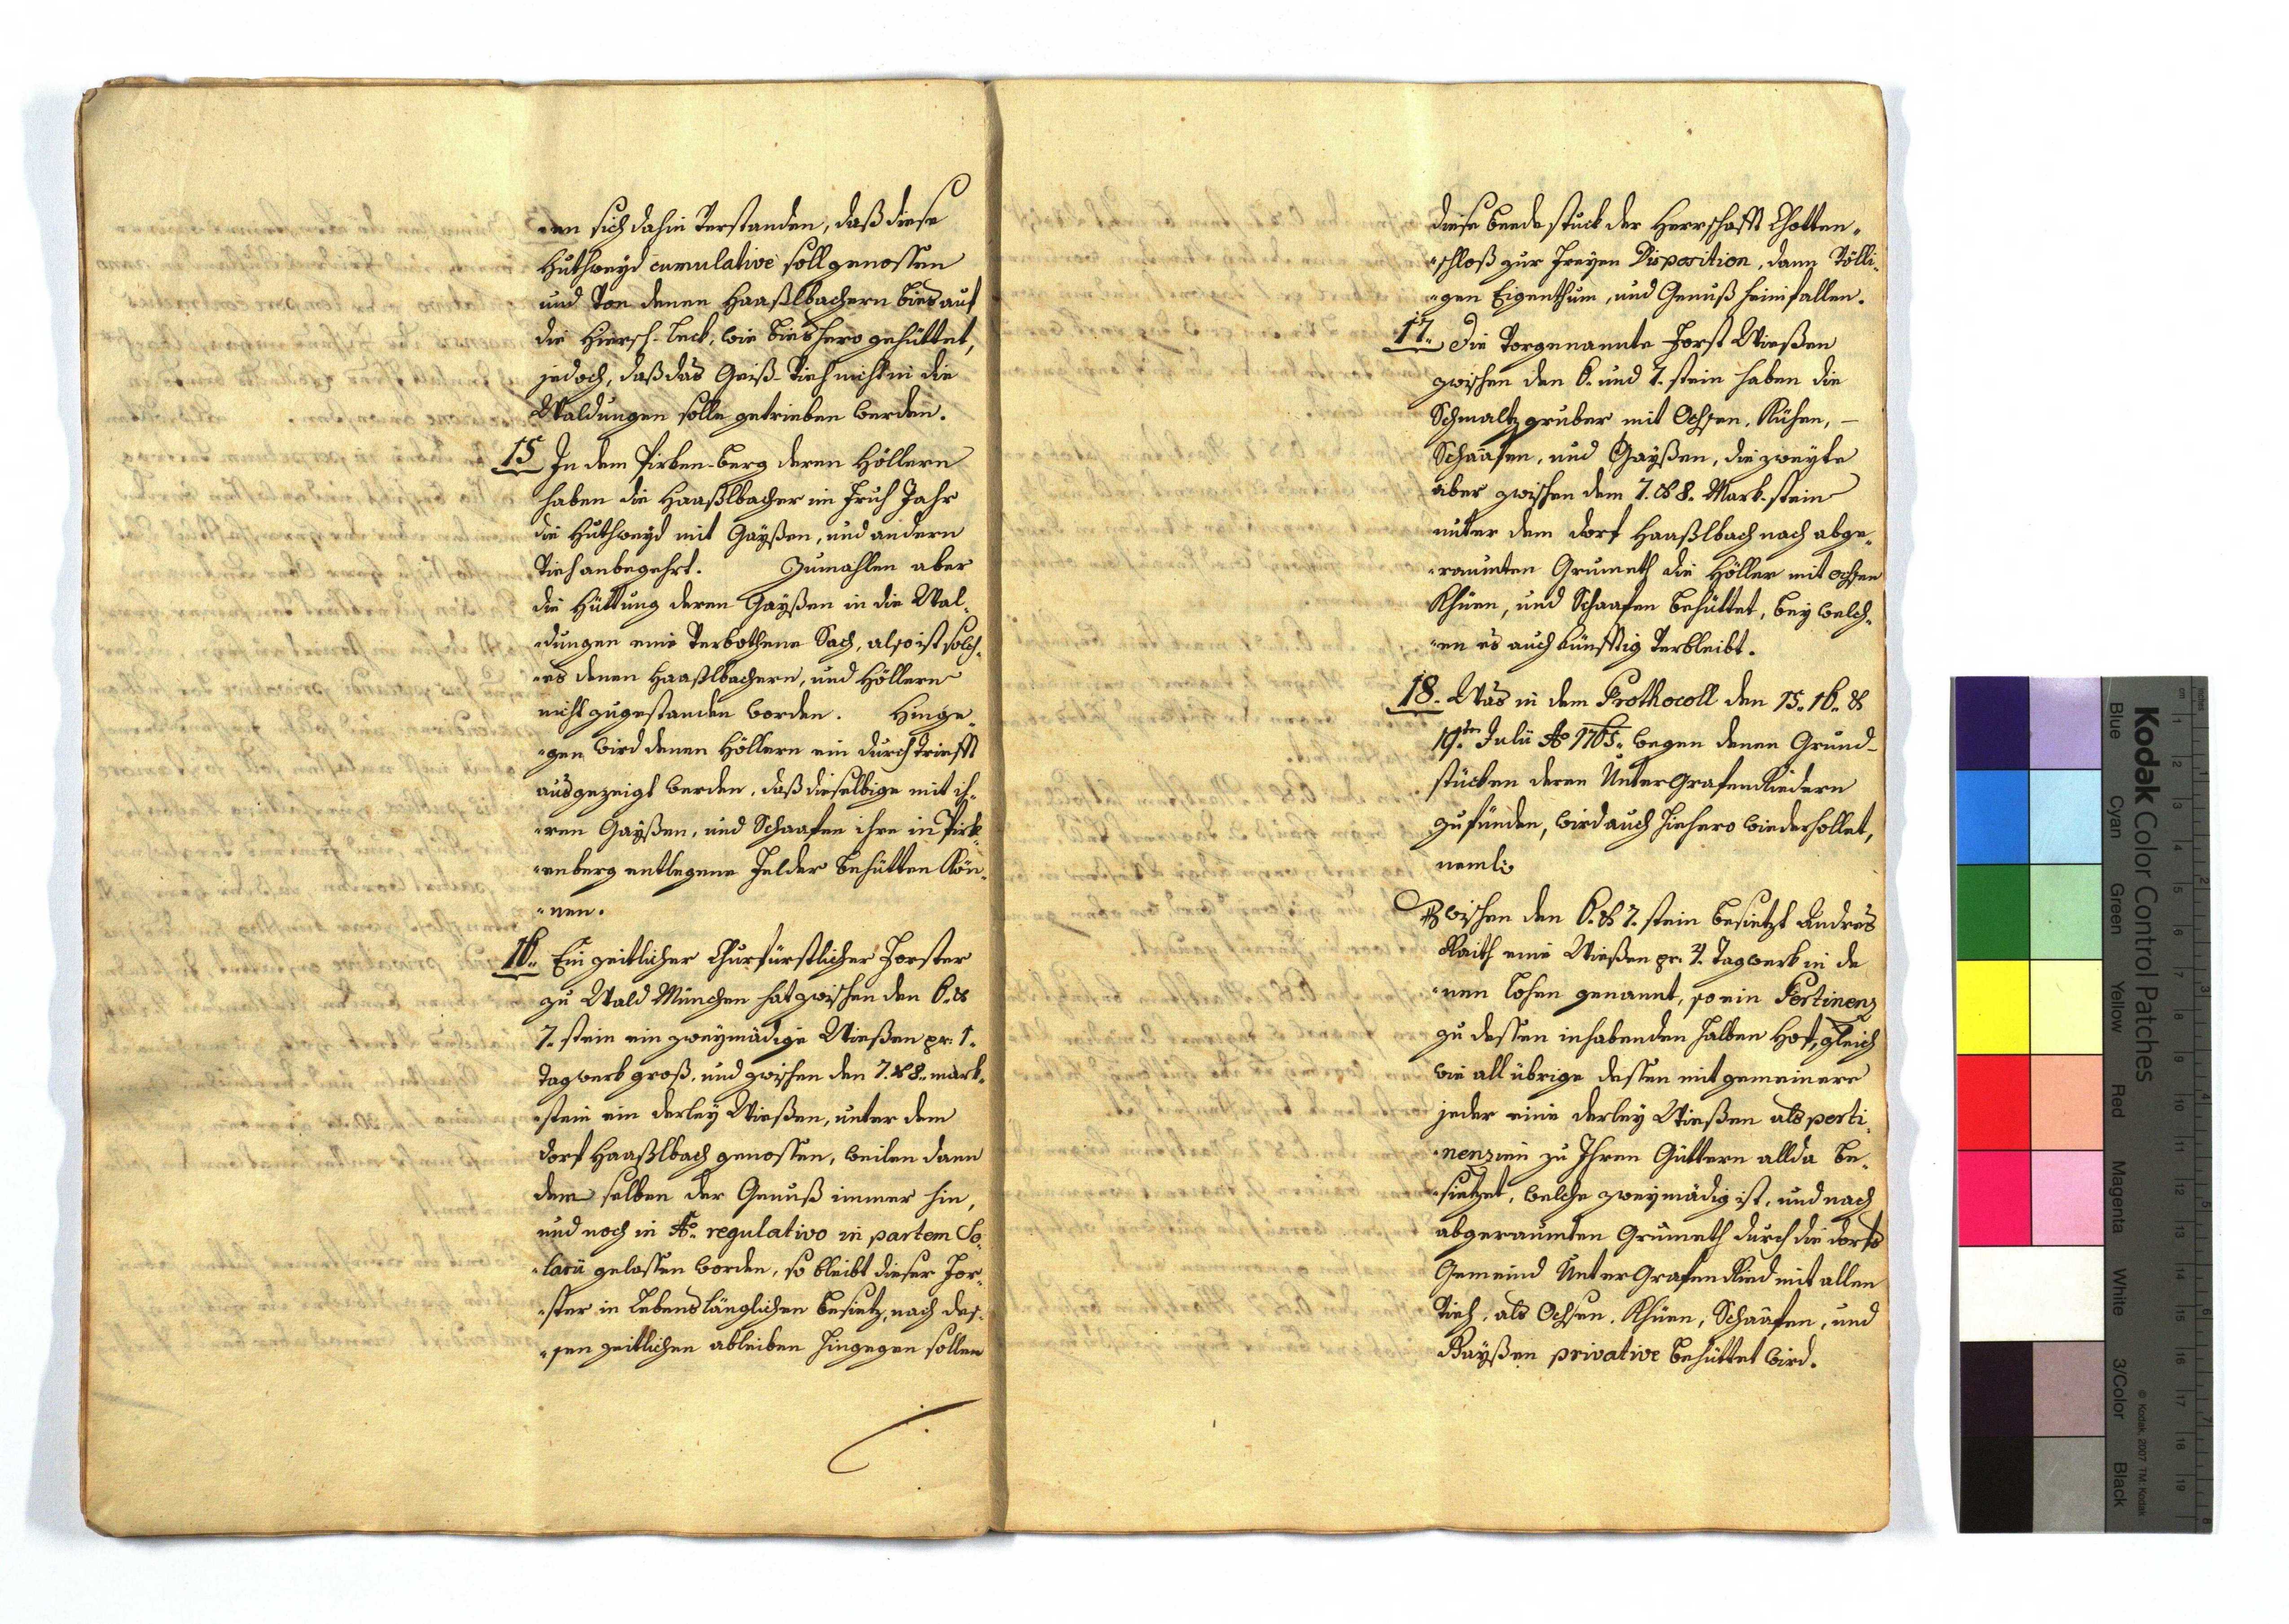 -en sich dahin verstanden, daß diese
Huthweyd cumulative soll genossen
und von denen Haaßlbachern bies auf
die Hiersch-Leck, wie bieshero gehüttet,
jedoch, daß das Geiß-Vieh nicht in die
Waldungen solle getrieben werden.
15 In dem Pirken-berg deren Höllern
haben die Haaßlbacher im Früh Jahr
die Huthweyd mit Gayßen, und andern
Vieh anbegehrt. Zumahlen aber
die Hüttung deren Gayßen in die Wal-
-dungen eine verbothene Sach, also ist solch-
-es denen Haaßlbachern, und Höllern
nicht zugestanden worden. Hinge-
-gen wird denen Höllern ein durchtriefft
ausgezeigt werden, daß dieselbige mit ih-
-ren Gayßen, und Schaafen ihre in Pirk-
-enberg entlegene Felder behütten kön-
-nen.
16. Ein zeitlicher Churfürstlicher Forster
zu Wald München hat zwischen den 6. &
7. stein ein zweymädige Wießen pr: 1.
Tagwerk groß, und zwischen den 7. & 8. mark-
-stein ein derley Wießen, unter dem
dorf Haaßlbach genossen, weilen dann
dem selben der Genuß immer hin,
und noch in Ao. regulativo in partem Sa-
-larii gelassen worden, so bleibt dieser For-
-ster in Lebenslänglichen besietz, nach des-
-sen zeitlichen ableiben hingegen sollen
diese beede stuck der Herrschafft Chotten-
-schloß zur freyen Disposition, dann völli-
-gen Eigenthum, und Genuß heimfallen.
17. Die vorgenannte Forst Wießen
zwischen den 6. und 7. stein haben die
Schmaltzgruber mit Ochsen, Kühen, -
Schaafen, und Gayßen, die zweyte
aber zwischen dem 7. & 8. Mark-stein
unter dem dorf Haaßlbach nach abge-
-raumten Grumeth die Höller mit ochsen
Khüen, und Schaafen behüttet, bey welch-
-en es auch künfftig verbleibt.
18. Was in dem Prothocoll den 15. 16. &
19ten Julii Ao 1765. wegen denen Grund-
stücken deren Unter Grafen Riedern
zufünden, wird auch hiehero wiederhollet,
nemli:
Zwischen den 6. & 7. stein besietzt Andreas
Raith eine Wießen pr: 4. Tagwerk in de
-nen Lohen genannt, so ein Pertinenz
zu dessen inhabenden halben Hof, gleich
wie all übrige dessen mit gemeinere
jeder eine derley Wießen als perti-
-nenzien zu Ihren Güttern allda be-
-sietzet, welche zweymädig ist, und nach
abgeraumten Grumeth durch die dorfs
Gemeind Unter Grafen Ried mit allen
Vieh, als Ochsen, Khüen, Schaafen, und
Gayßen privative behüttet wird.
Kodak Color Control Patches
Blue Cyan Green Yellow Red Magenta White 3/Color Black
© Kodak, 2007 TM: Kodak